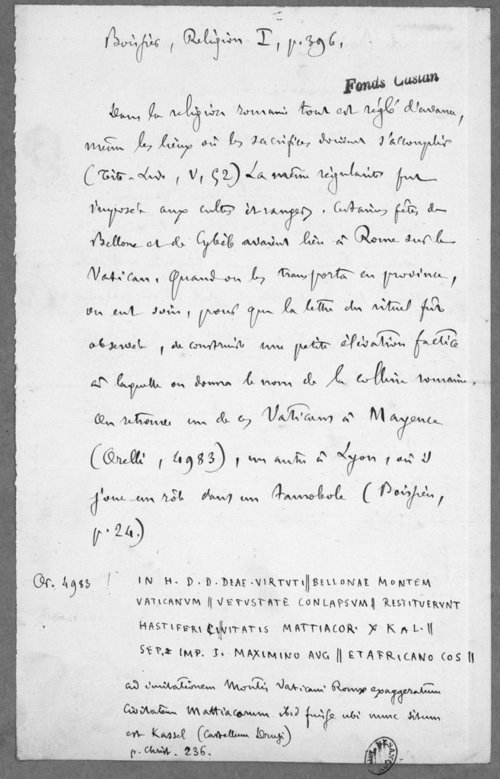 Boissier, Religion I, p. 396.
Fonds Castan
Dans la religion romaine tout est réglé d'avance,
même les lieux où les sacrifices doivent s'accomplir
(Tite-Live, V, 52) La même régularité fut
imposée aux cultes étrangers. Certaines fêtes de
Bellone et de Cybèle avaient lieu à Rome sur le
Vatican. Quand on les transporta en province,
on eut soin, pour que la lettre du rituel fût
observée, de construire une petite élévation factice
à laquelle on donna le nom de la colline romaine.
On retrouve un de ces Vaticans à Mayence
(Orelli, 4983), un autre à Lyon, où il
joue un rôle dans un taurobole (Boissieu,
p. 24.)
Or. 4983
IN H. D. D. DEAE. VIRTVTI || BELLONAE MONTEM
VATICANVM || VETVSTATE CONLAPSVM || RESTITVERVNT
HASTIFERI CIVITATIS MATTIACOR. X KAL. ||
SEP. IMP. I. MAXIMINO AVG || ET AFRICANO COS ||
ad imitationem Montis Vaticani Romae exaggeratum
Civitatem Mattiacorum ibid fuisse ubi nunc situm
est Kassel (Castellum Drusi)
p. Christ. 236.